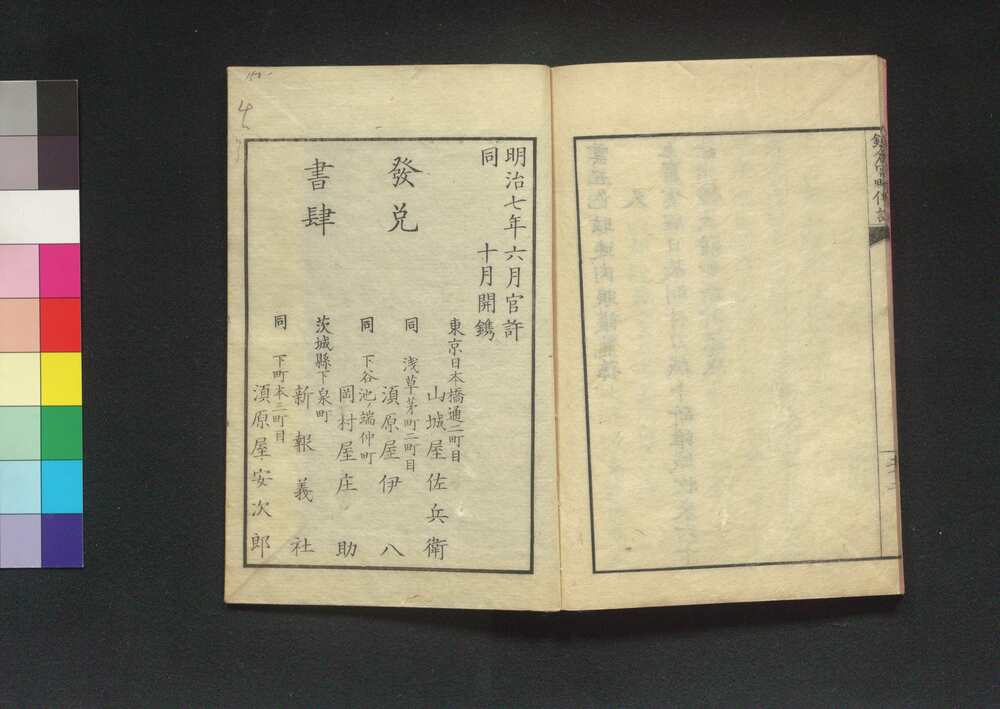 明治七年六月官許
同　十月開鐫
發兌
書肆
東京日本橋通二町目
山城屋佐兵衛
同　浅草茅町二町目
須原屋伊八
同　下谷池ノ端仲町
岡村屋庄助
茨城縣下泉町
新報義社
同　下町本三町目
須原屋安次郎